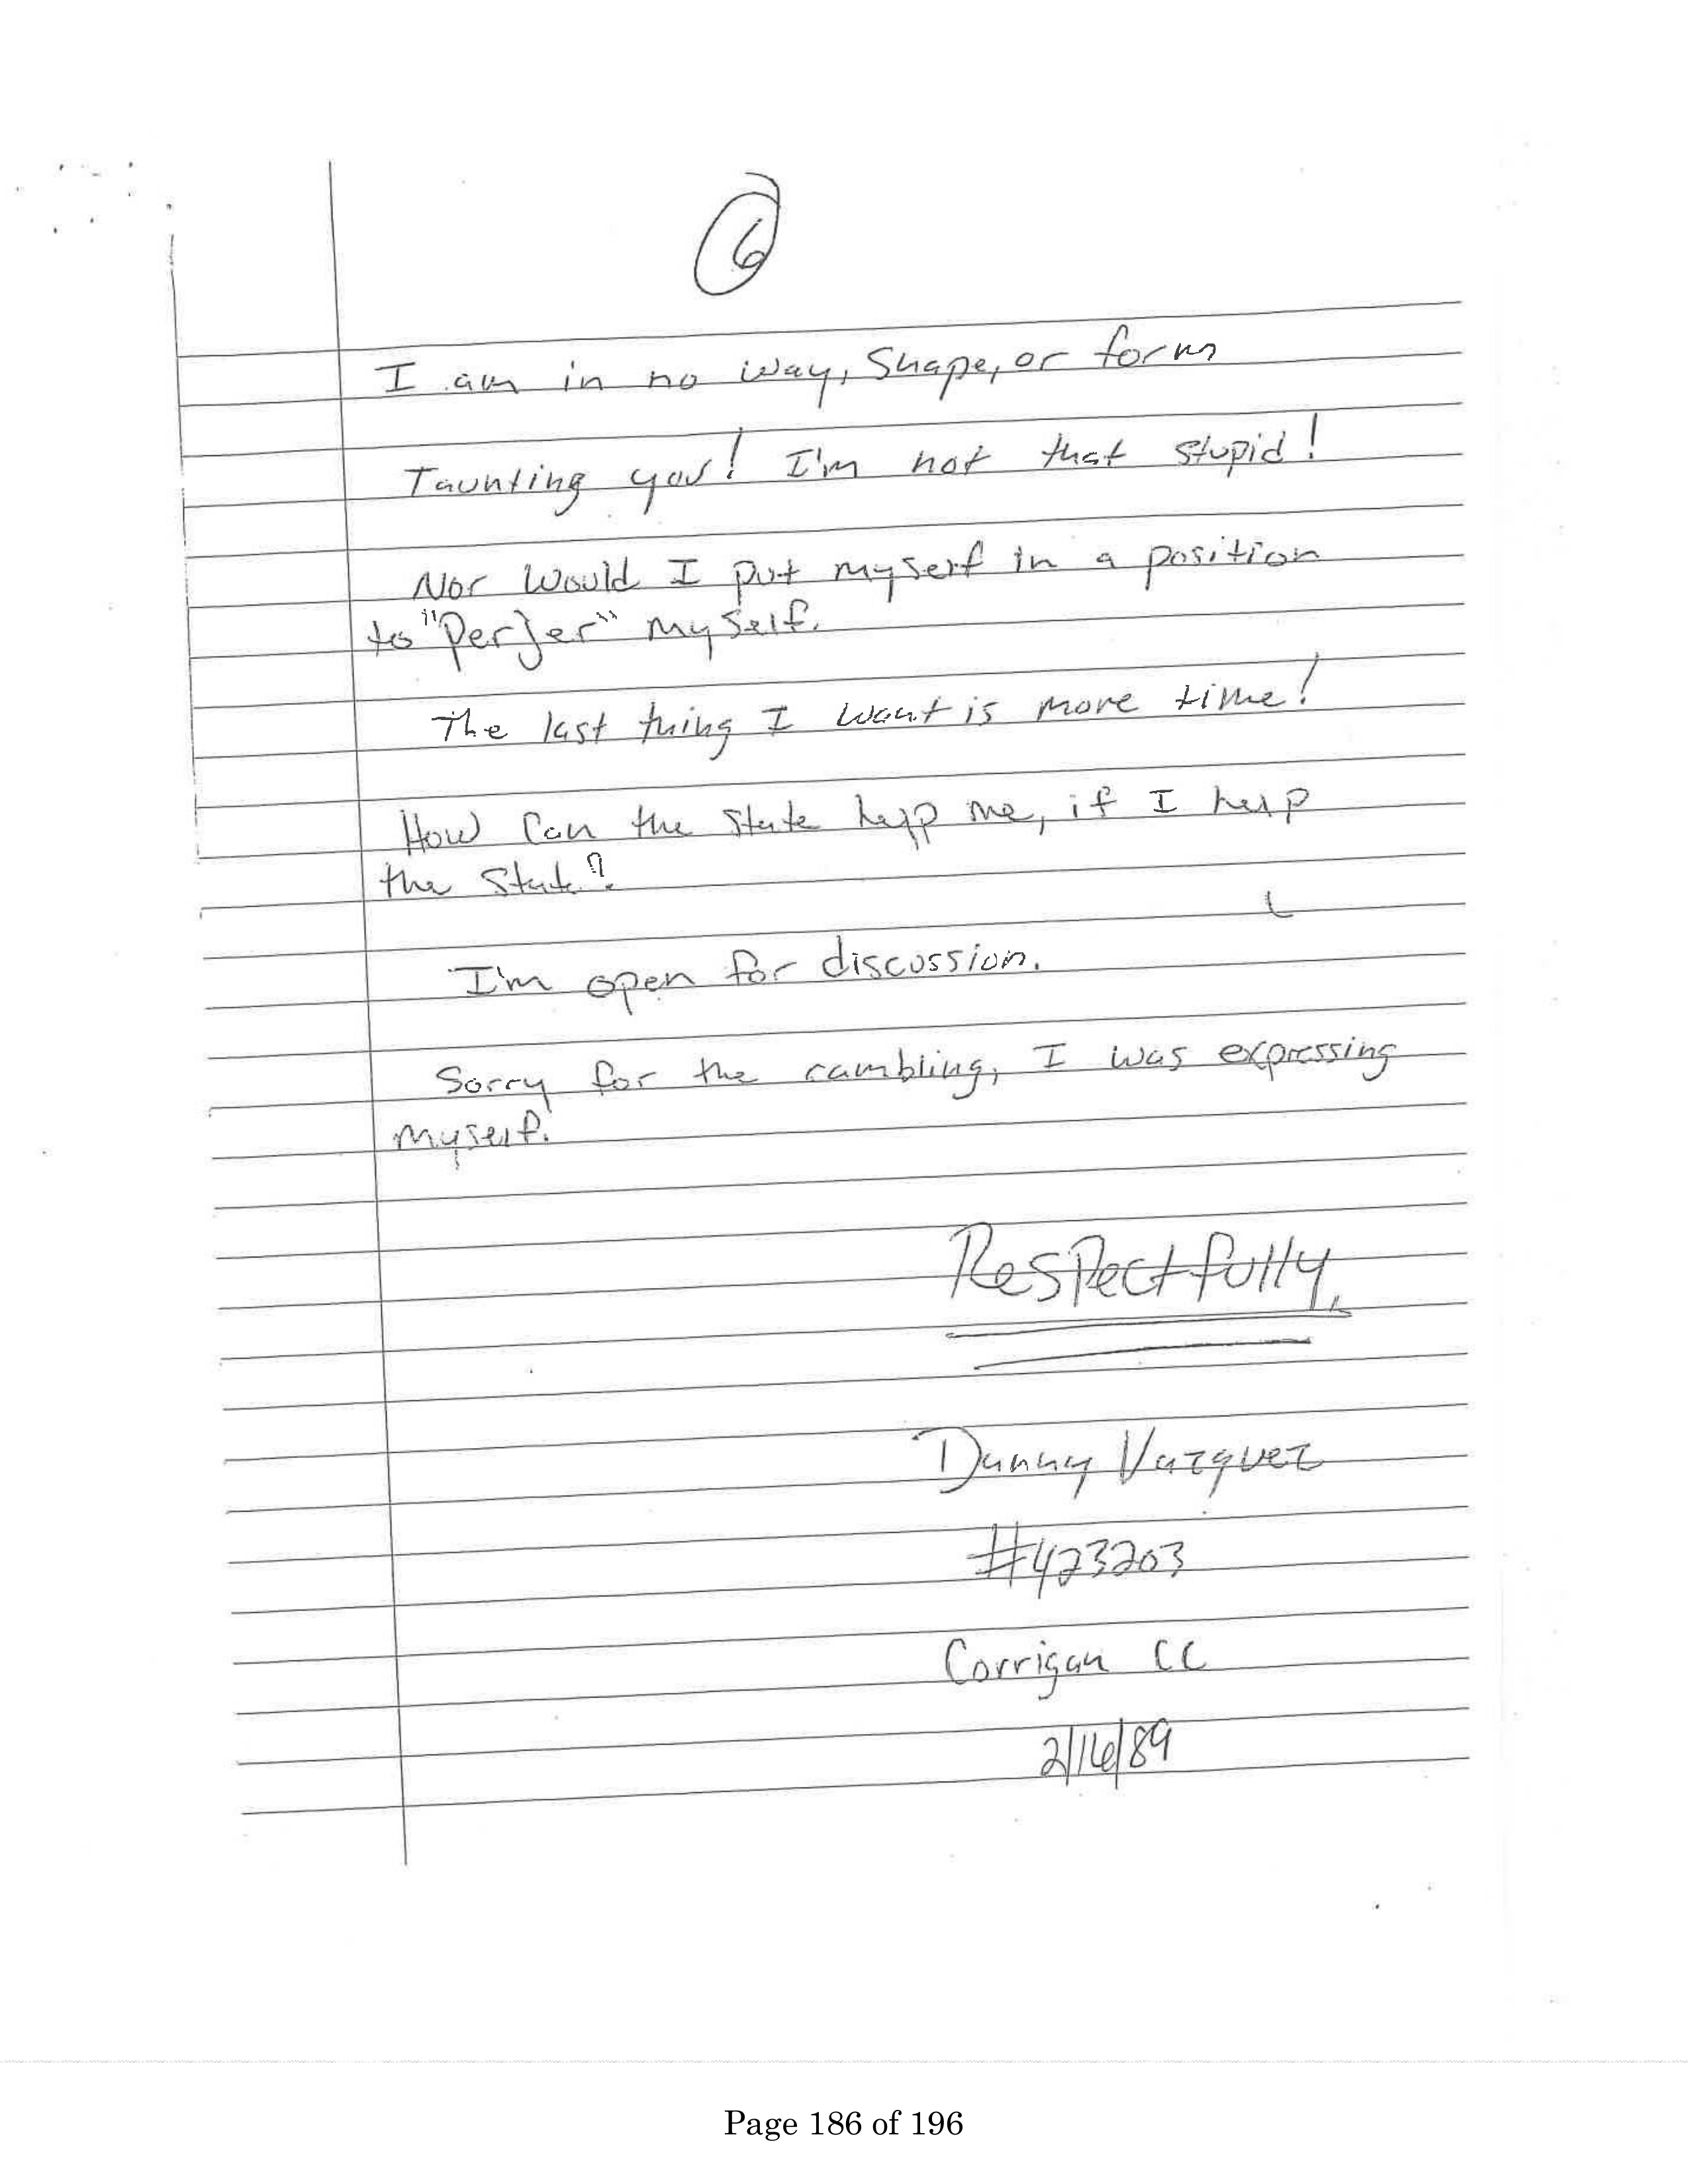 6
I am in no way, Shape, or form
Taunting you! I'm not that stupid!
Nor Would I put myself in a position
to "Perjer" myself.
The last thing I want is more time!
How Can the State help me, if I help
the State?
I'm open for discussion.
Sorry for the rambling, I was expressing
myself.
Respectfully,
Danny Vazquez
#423203
Corrigan CC
2/16/89
Page 186 of 196